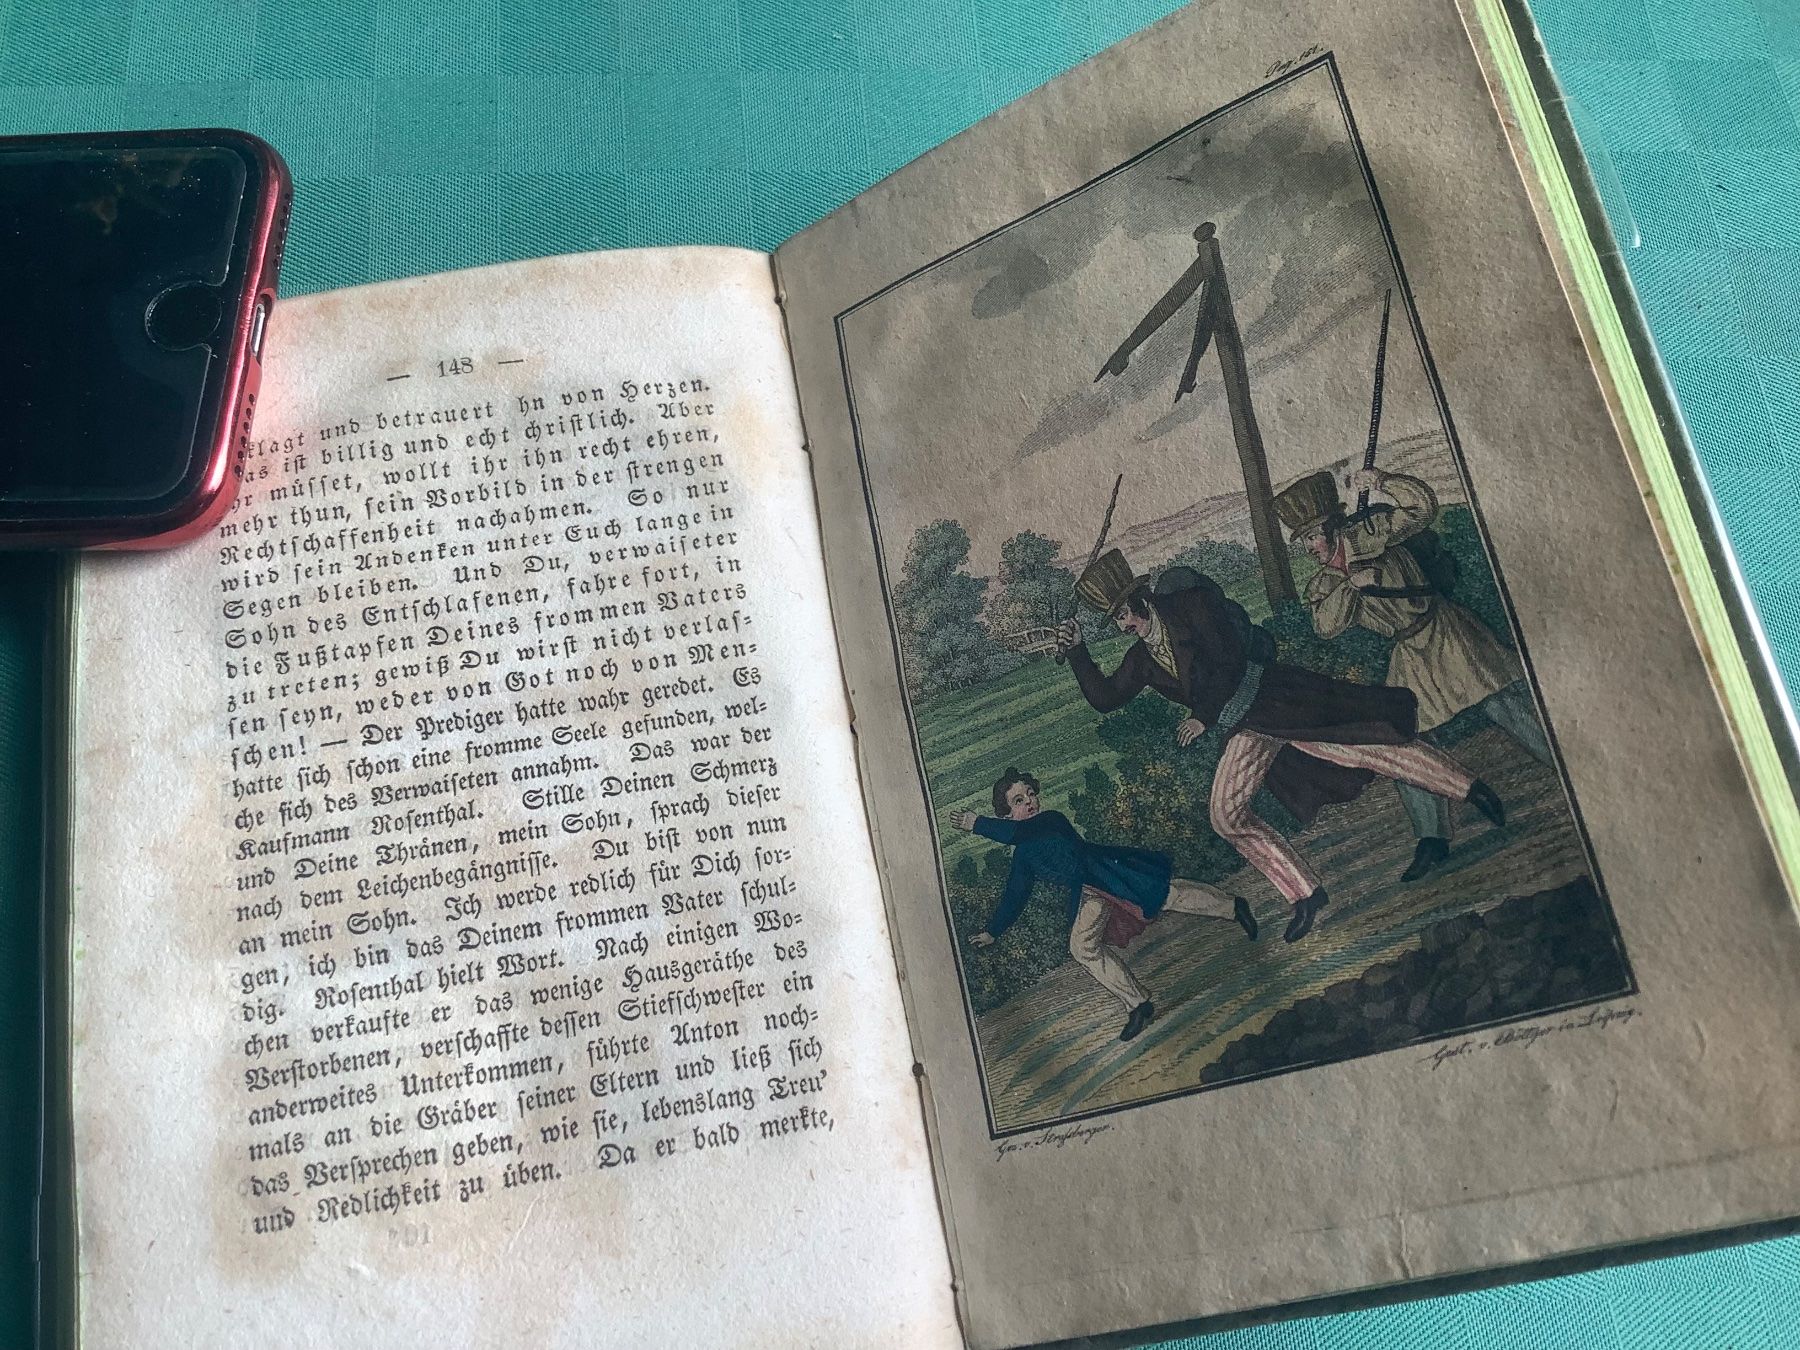 — 148 —
klagt und betrauert hn von Herzen.
as ist billig und echt christlich. Aber
hr müsset, wollt ihr ihn recht ehren,
mehr thun, sein Vorbild in der strengen
Rechtschaffenheit nachahmen. So nur
wird sein Andenken unter Euch lange in
Segen bleiben. Und Du, verwaiseter
Sohn des Entschlafenen, fahre fort, in
die Fußtapfen Deines frommen Vaters
zu treten; gewiß Du wirst nicht verlas-
sen seyn, weder von Got noch von Men-
schen! — Der Prediger hatte wahr geredet. Es
hatte sich schon eine fromme Seele gefunden, wel-
che sich des Verwaiseten annahm. Das war der
Kaufmann Rosenthal. Stille Deinen Schmerz
und Deine Thränen, mein Sohn, sprach dieser
nach dem Leichenbegängnisse. Du bist von nun
an mein Sohn. Ich werde redlich für Dich sor-
gen, ich bin das Deinem frommen Vater schul-
dig. Rosenthal hielt Wort. Nach einigen Wo-
chen verkaufte er das wenige Hausgeräthe des
Verstorbenen, verschaffte dessen Stiefschwester ein
anderweites Unterkommen, führte Anton noch-
mals an die Gräber seiner Eltern und ließ sich
das Versprechen geben, wie sie, lebenslang Treu'
und Redlichkeit zu üben. Da er bald merkte,
Pag. 151.
Gez. v. Straßberger.
Gest. v. Böttger in Leipzig.